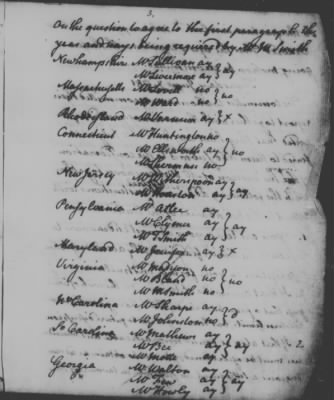 3.
On the question to agree to the first paragraph the
yeas and nays being required by Mr M Smith
Newhampshire Mr Sullivan ay } ay
Mr Livermore ay
Massachusetts Mr Lovell no } no
Mr Ward no
Rhode Island Mr Varnum ay } x
Connecticut Mr Huntington no } no
Mr Ellsworth ay
Mr Sherman no
New Jersey Mr Witherspoon ay } ay
Mr Houston ay
Pensylvania Mr Atlee ay } ay
Mr Clymer ay
Mr T Smith ay
Maryland Mr Jenifer ay } x
Virginia Mr Madison no } no
Mr Bland no
Mr M Smith no
No Carolina Mr Sharpe ay } d
Mr Johnston no
So Carolina Mr Mathews ay } ay
Mr Bee ay
Mr Motte ay
Georgia Mr Walton ay } ay
Mr Few ay
Mr Howly ay